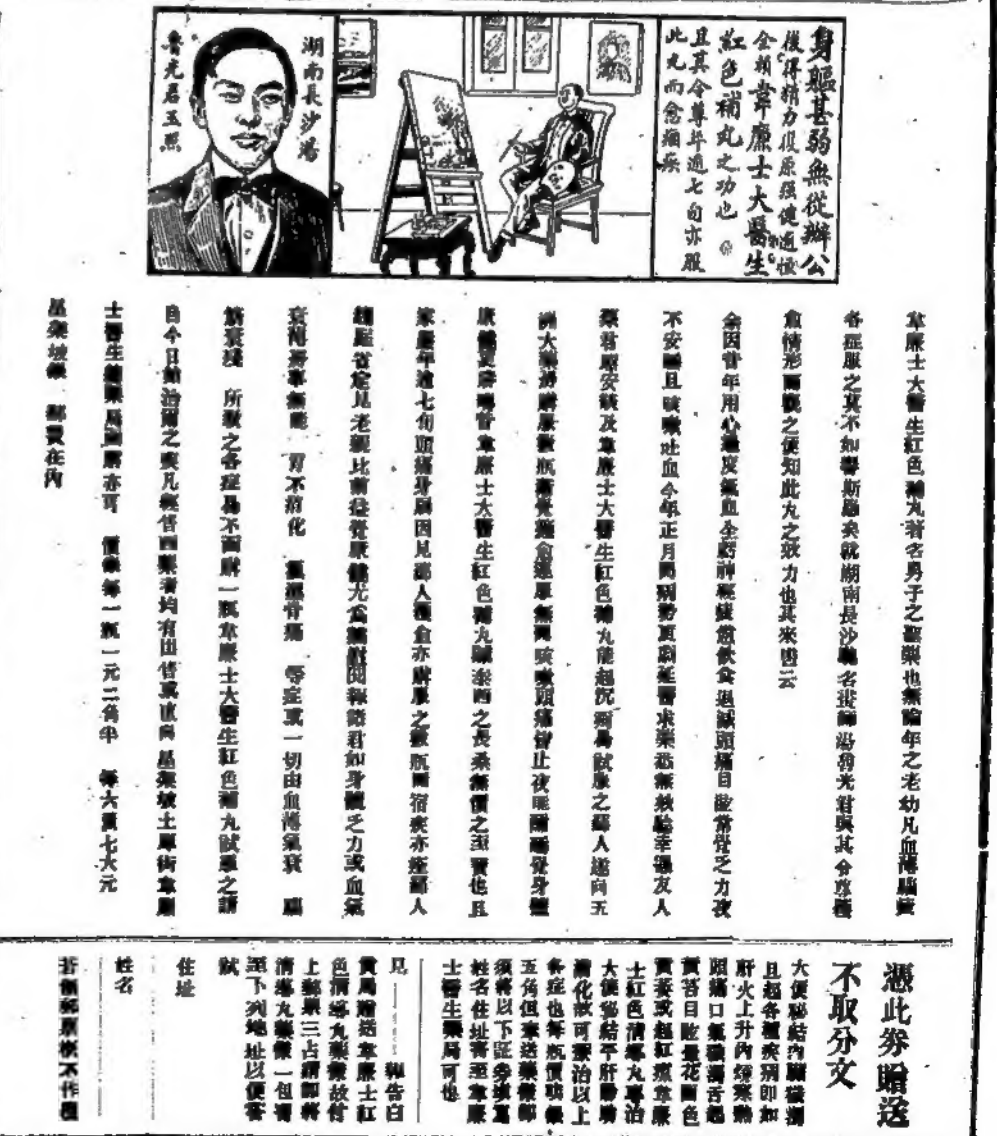 身軀甚弱無從辦公
後得精力復原强健逾恆
全賴韋廉士大醫生
紅色補丸之功也
且其令尊年逾七旬亦服
此丸而愈痼疾
湖南長沙湯
魯光君玉照
韋廉士大醫生紅色補丸著名男子之聖藥也無論年之老幼凡血薄腦
各症服之莫不如響斯應矣就湖南長沙馳名畫師湯魯光君與其令尊獲
愈情形而觀之便知此丸之效力也其來函云
余因昔年用心過度氣血全虧神經疲憊飲食退減頭痛目眩常覺乏力夜
不安睡且咳嗽吐血今年正月間病勢更劇延醫求藥悉無效驗幸遇友人
蔡君原安談及韋廉士大醫生紅色補丸能起沉疴爲試服之鄙人遂向五
洲大藥房購服數瓶漸覺痊愈還原無間咳嗽頭痛皆止夜眠酣適身體
康健更勝疇昔韋廉士大醫生紅色補丸誠泰西之長桑無價之至寶也且
家嚴年逾七旬頭痛身弱因見鄙人獲愈亦購服之數瓶而宿疾亦痊鄙人
歸里省定見老親比前益覺康健尤爲閱報諸君如身體乏力或血氣
衰薄 胃不消化 等症或一切由血薄氣衰 腦
所致之各症曷不面購一瓶韋廉士大醫生紅色補丸試服之請
自今日始治爾之疾凡經售西藥者均有出售或直向 星架坡土庫街韋廉
士醫生藥局函購亦可 價銀每一瓶一元二角半 每六瓶七大元
星架坡 郵費在內
憑此券贈送
不取分文
大便秘結內臟
且起各種疾病即如
肝火上升內煩
頭痛口氣穢濁舌起
黃苔目眩暈花面色
黃萎或起紅瘰韋廉
士紅色清導丸專治
大便秘結平肝
消化故可療治以上
各症也每瓶價
五角但索送
須將以下証券填寫
姓名住址寄至韋廉
士醫生藥局可也
見 報告白
貴局贈送韋廉士紅
色清導丸藥樣故付
上郵票三占請即將
清導丸藥樣一包寄
至下列地址以便嘗
試
住址
姓名
若無郵票概不作覆